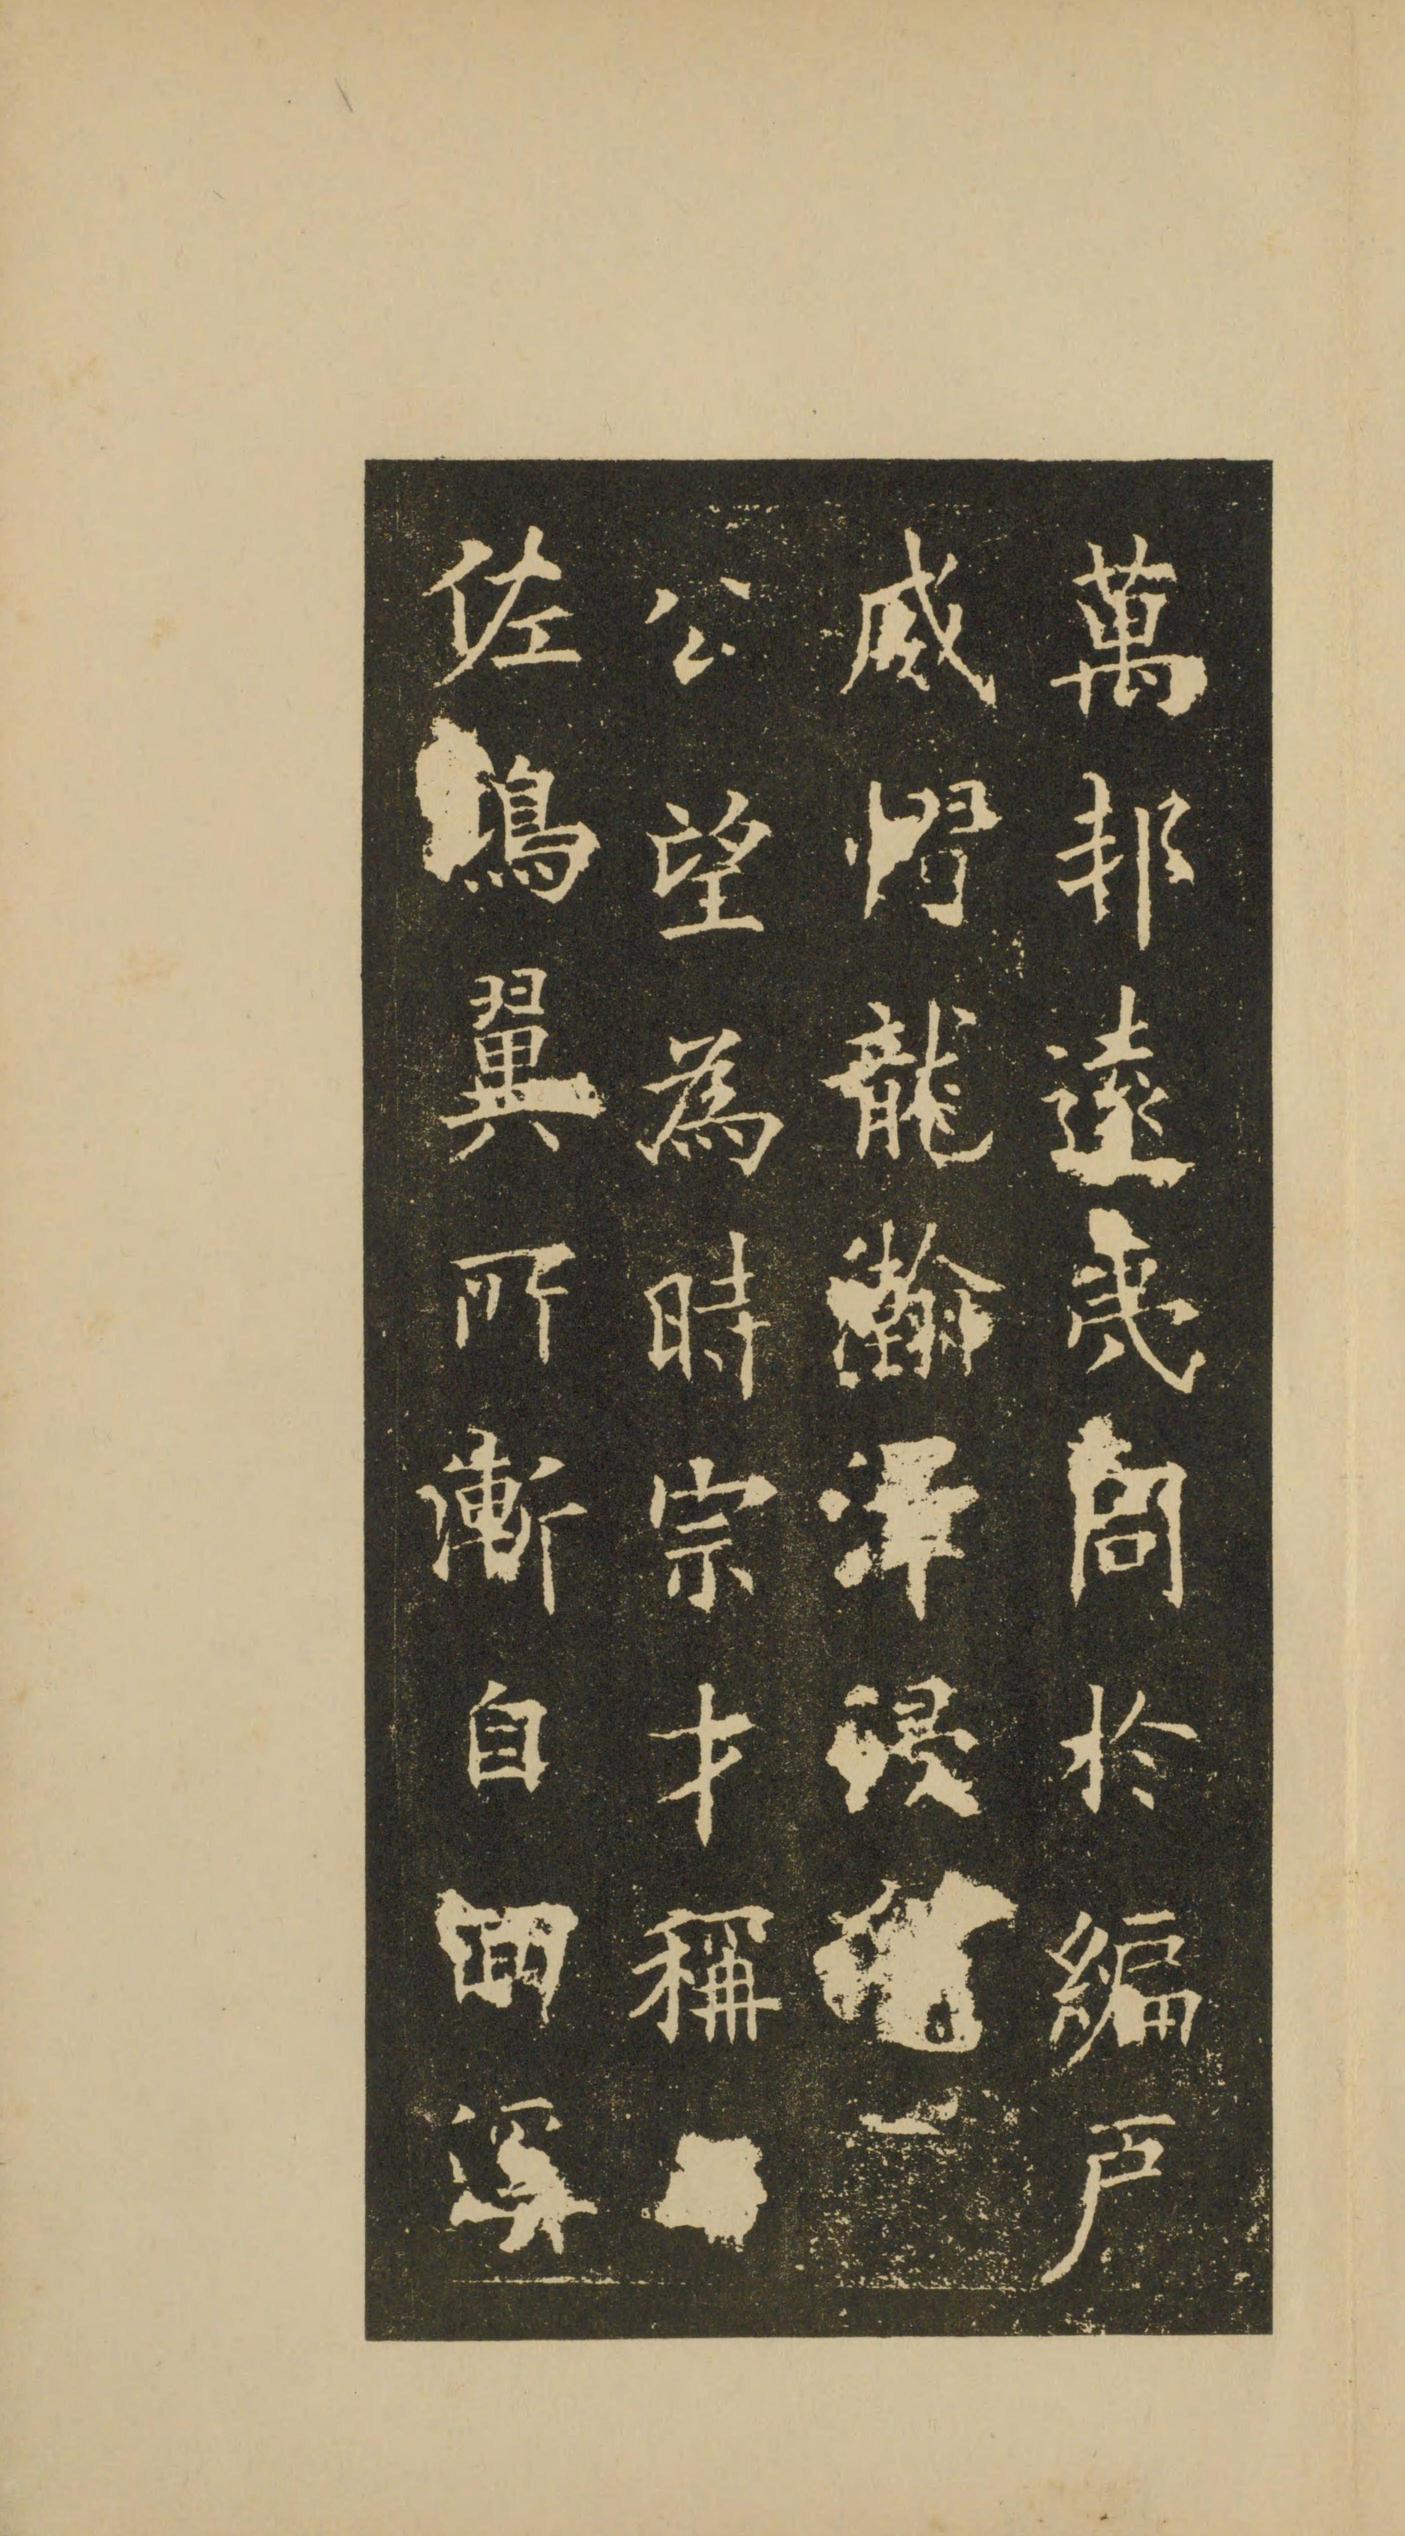 萬邦遠同於編戶
威慴龍瀚澤浸
公望為時宗才稱
佐鳴翼所漸自溪